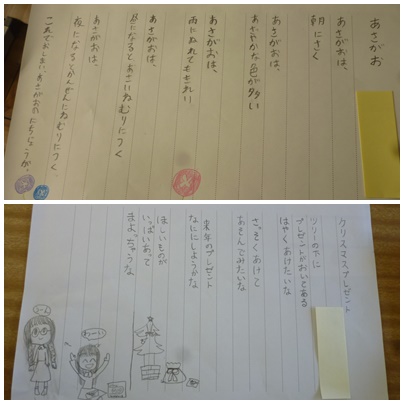 あさがお
あさがおは、
朝にさく
あさがおは、
あざやかな色が多い
あさがおは、
雨にぬれてもきれい
あさがおは、
昼になるとあさいねむりにつく
あさがおは、
夜になるとかんぜんにねむりにつく
これでおしまい、あさがおのいちにちでした
クリスマスプレゼント
ツリーの下に
プレゼントがおいてある
はやくあけたいな
さっそくあけて
あそんでみたいな
来年のプレゼント
なににしようかな
ほしいものが
いっぱいあって
まよっちゃうな